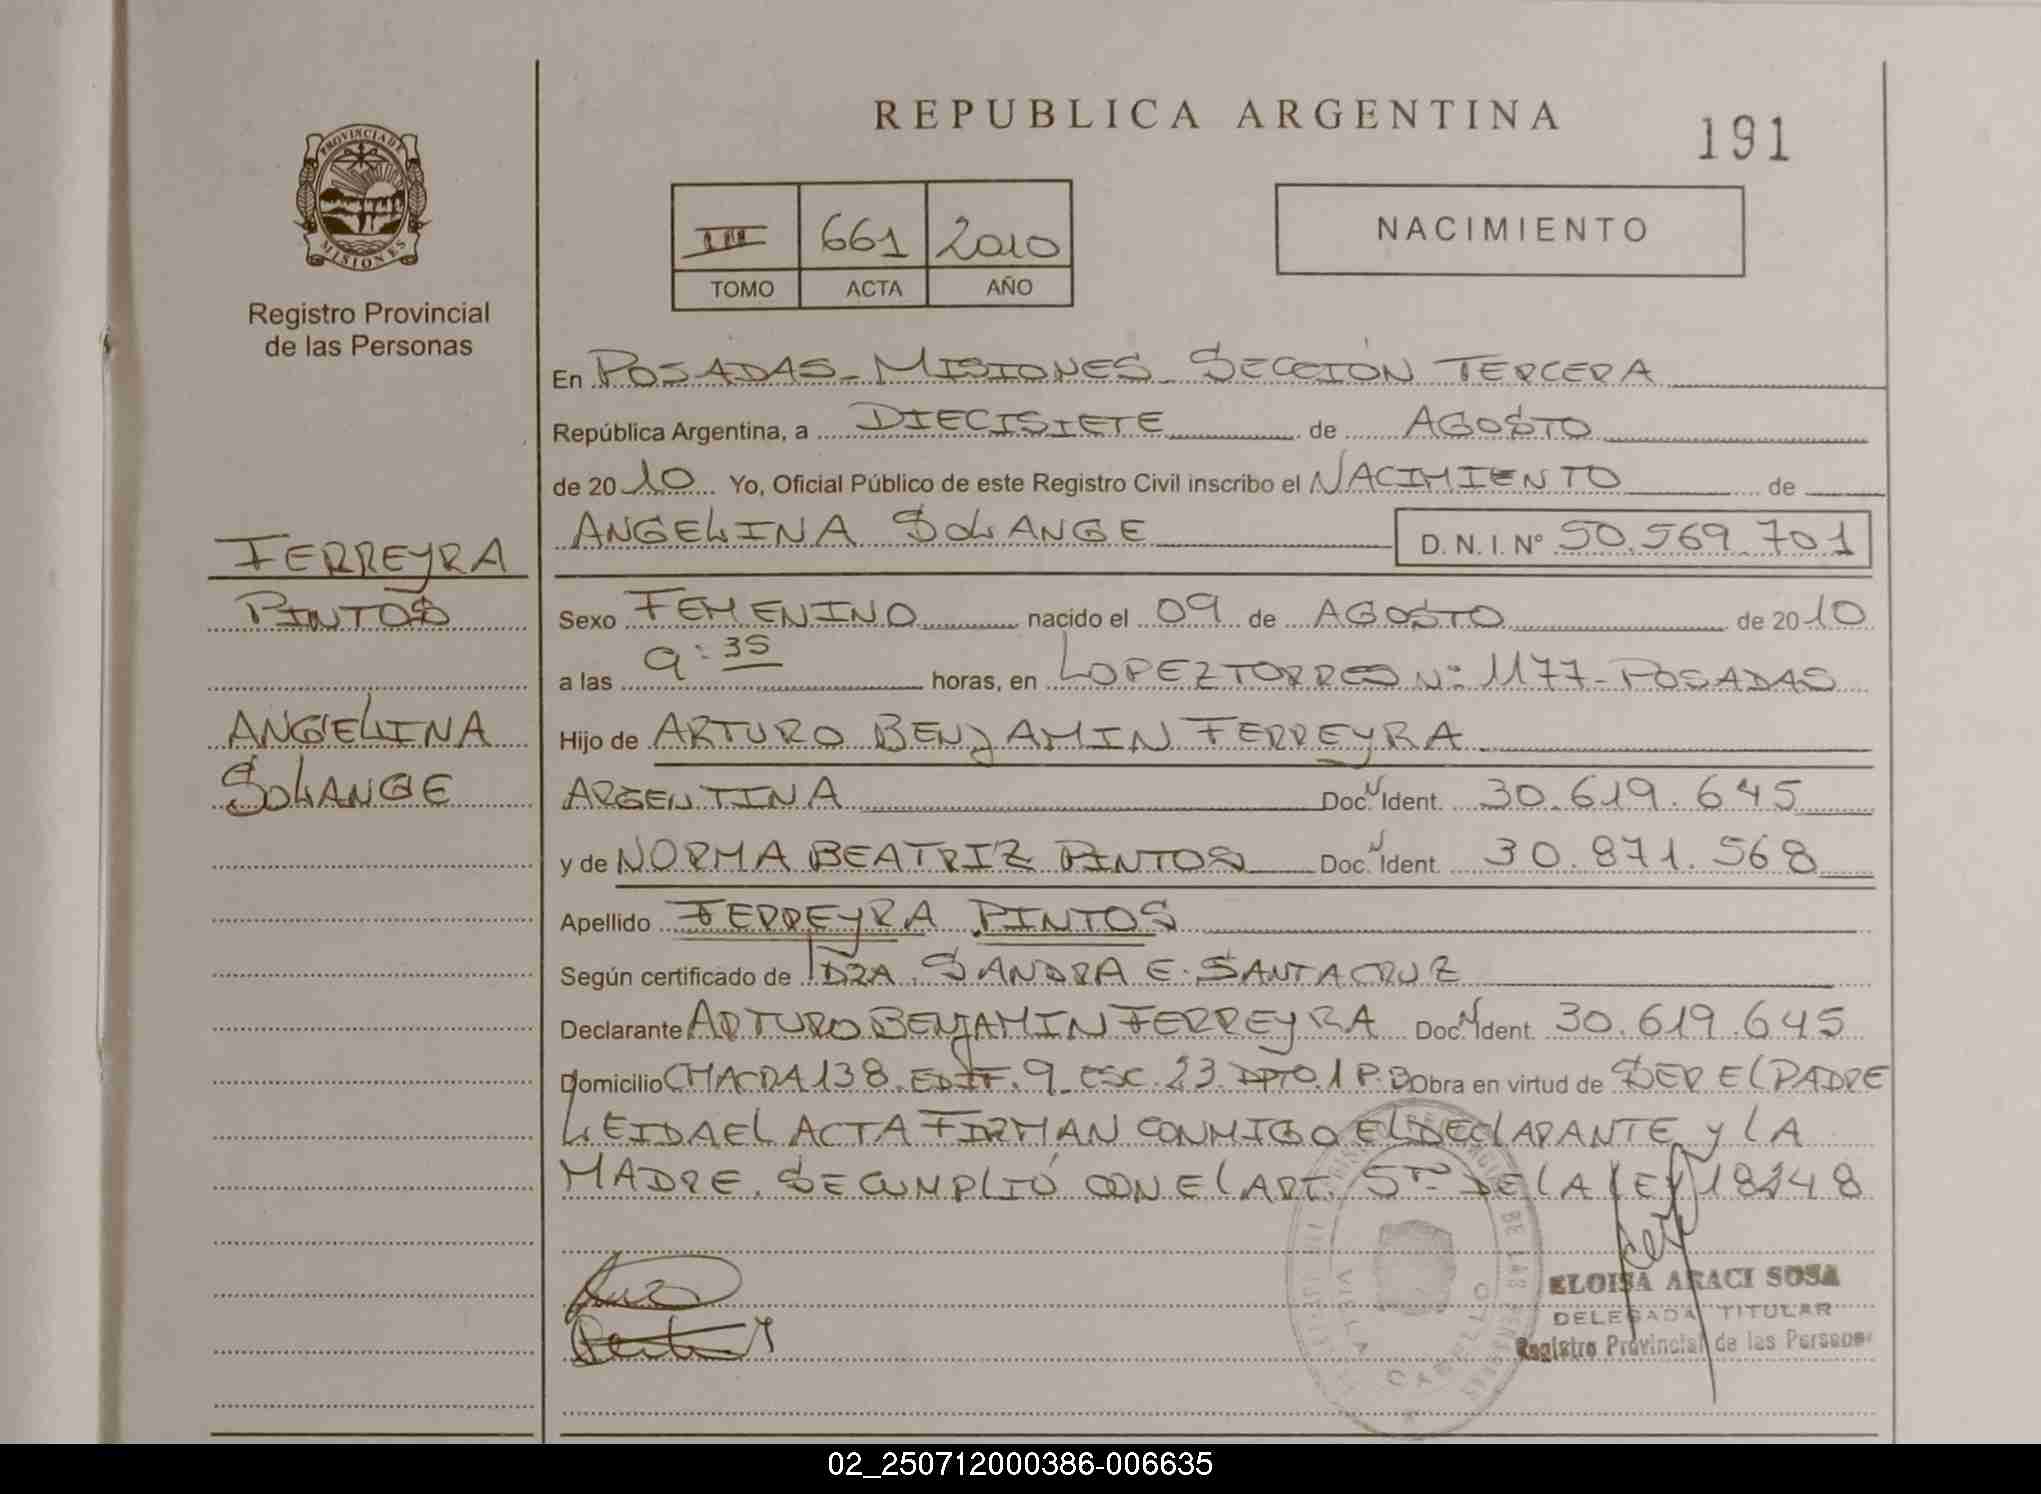 REPUBLICA ARGENTINA
191
PROVINCIA DE
MISIONES
Registro Provincial
de las Personas
III 661 2010
TOMO ACTA AÑO
NACIMIENTO
En POSADAS - MISIONES - SECCIÓN TERCERA
República Argentina, a DIECISIETE de AGOSTO
de 2010 Yo, Oficial Público de este Registro Civil inscribo el NACIMIENTO de
ANGELINA SOLANGE D. N. I. Nº 50.569.701
FERREYRA
PINTOS
ANGELINA
SOLANGE
Sexo FEMENINO nacido el 09 de AGOSTO de 2010
a las 9:35 horas, en LOPEZ TORRES Nº 1177 - POSADAS
Hijo de ARTURO BENJAMIN FERREYRA
ARGENTINA Doc. Ident. 30.619.645
y de NORMA BEATRIZ PINTOS Doc. Ident. 30.871.568
Apellido FERREYRA PINTOS
Según certificado de DRA. SANDRA E. SANTACRUZ
Declarante ARTURO BENJAMIN FERREYRA Doc. Ident. 30.619.645
Domicilio CHACRA 138. EDIF. 9 ESC. 23 DPTO. 1 P.B Obra en virtud de SER EL PADRE
LEIDA EL ACTA FIRMAN CONMIGO EL DECLARANTE y LA
MADRE. SE CUMPLIÓ CON EL ART. 5to DE LA LEY 18248
VILLA CABELLO
ELOISA ARACI SOSA
DELEGADA TITULAR
Registro Provincial de las Personas
02_250712000386-006635